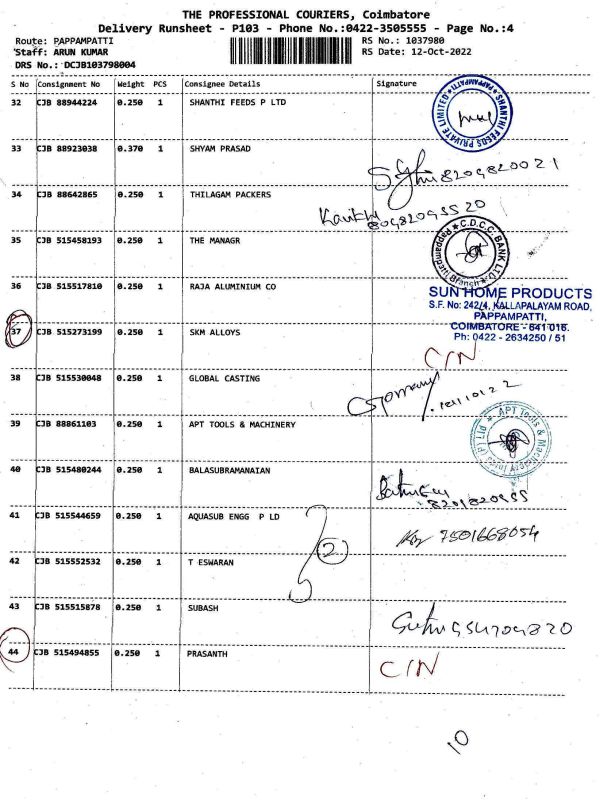 THE PROFESSIONAL COURIERS, Coimbatore
Delivery Runsheet - P103 - Phone No.:0422-3505555 - Page No.:4
Route: PAPPAMPATTI RS No.: 1037980
Staff: ARUN KUMAR RS Date: 12-Oct-2022
DRS No.: DCJB103798004
S No Consignment No Weight PCS Consignee Details Signature
32 CJB 88944224 0.250 1 SHANTHI FEEDS P LTD
SHANTHI FEEDS PRIVATE LIMITED PAPPAMPATTI
33 CJB 88923038 0.370 1 SHYAM PRASAD
34 CJB 88642865 0.250 1 THILAGAM PACKERS
35 CJB 515458193 0.250 1 THE MANAGR
C.D.C.C. BANK LTD. Branch
36 CJB 515517810 0.250 1 RAJA ALUMINIUM CO
SUN HOME PRODUCTS
S.F. No: 242/4, KALLAPALAYAM ROAD,
PAPPAMPATTI,
COIMBATORE - 641 016.
Ph: 0422 - 2634250 / 51
37 CJB 515273199 0.250 1 SKM ALLOYS
C/N
38 CJB 515530048 0.250 1 GLOBAL CASTING
39 CJB 88861103 0.250 1 APT TOOLS & MACHINERY
APT Tools & Machinery
40 CJB 515480244 0.250 1 BALASUBRAMANAIAN
41 CJB 515544659 0.250 1 AQUASUB ENGG P LD
7501668054
2
42 CJB 515552532 0.250 1 T ESWARAN
43 CJB 515515878 0.250 1 SUBASH
44 CJB 515494855 0.250 1 PRASANTH
C/N
10